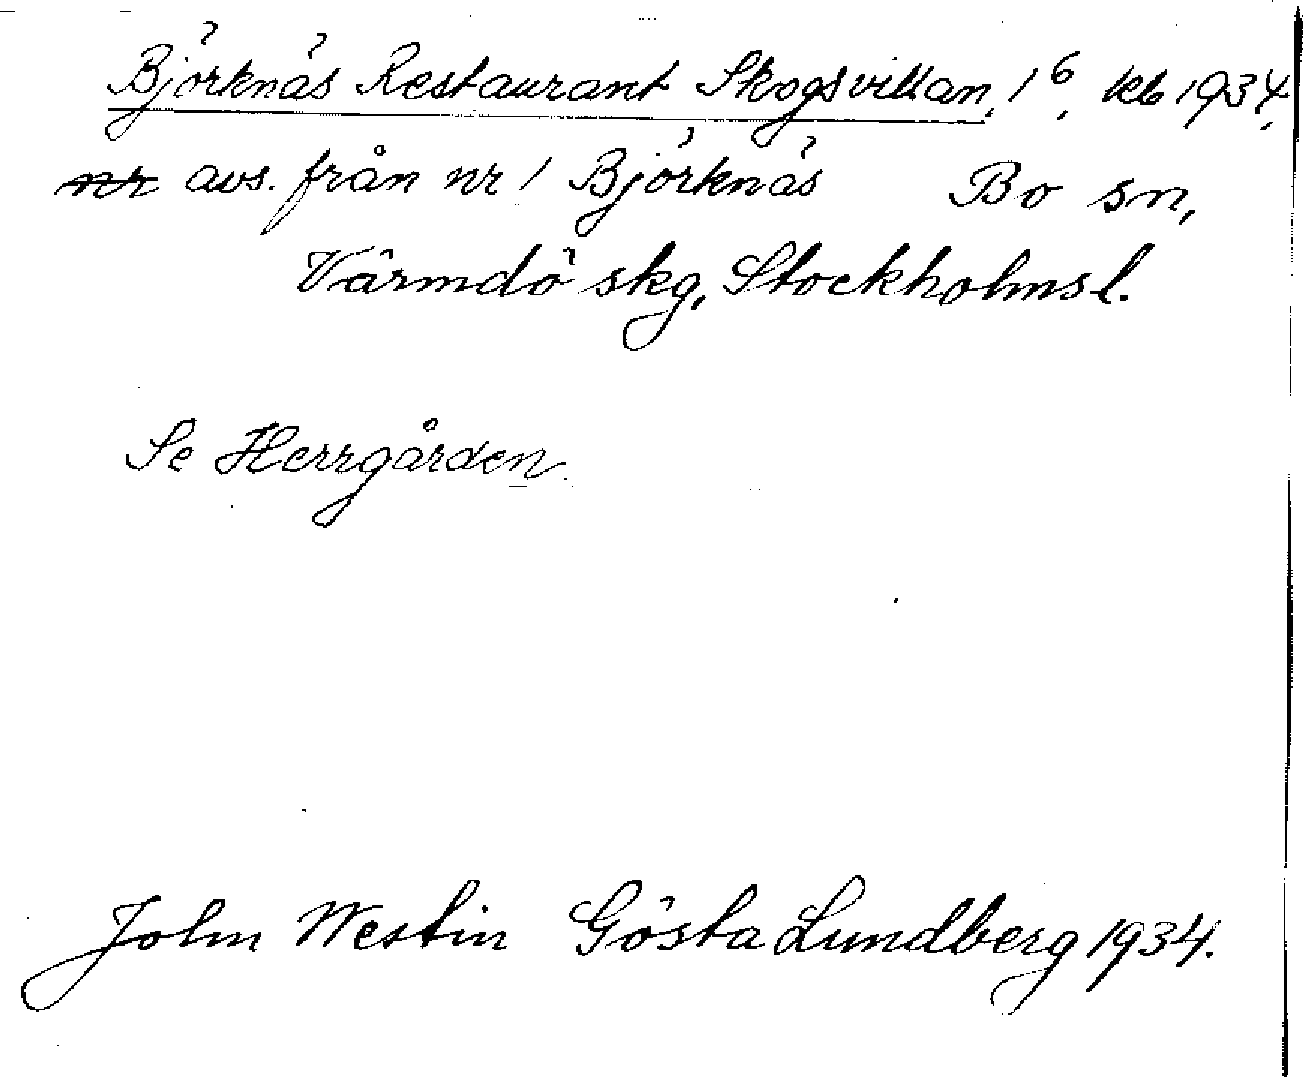 Björknäs Restaurant Skogsvillan, 1⁶, keb 1934,
nr avs. från nr 1 Björknäs Bo sn,
Värmdö skg, Stockholms l.
Se Herrgården.
John Westin Gösta Lundberg 1934.